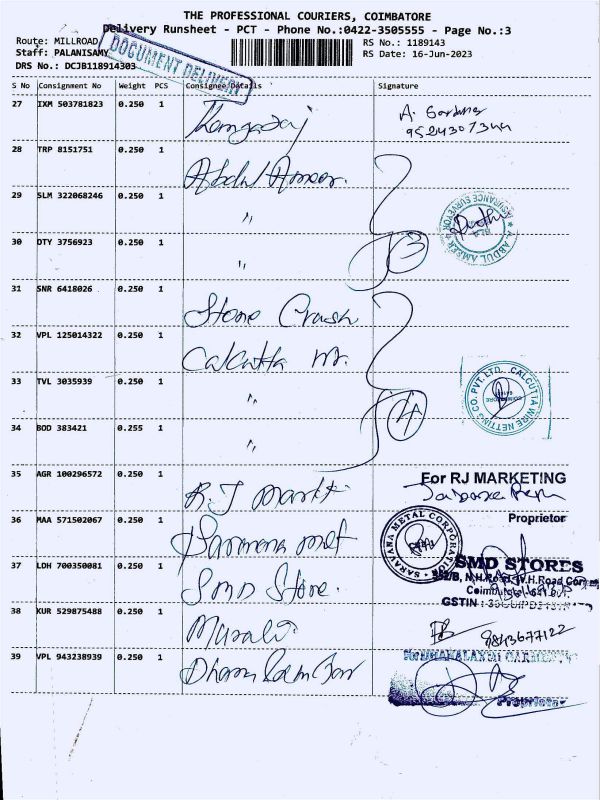 THE PROFESSIONAL COURIERS, COIMBATORE
Delivery Runsheet - PCT - Phone No.:0422-3505555 - Page No.:3
Route: MILLROAD
RS No.: 1189143
Staff: PALANISAMY
RS Date: 16-Jun-2023
DRS No.: DCJB118914303
DOCUMENT DELIVERY
S No Consignment No Weight PCS Consignee Details Signature
27 IXM 503781823 0.250 1 Thangaraj
28 TRP 8151751 0.250 1 Abdul Ameer.
29 SLM 322068246 0.250 1 "
30 DTY 3756923 0.250 1 " 3
A. ABDUL AMEER
31 SNR 6418026 0.250 1 Stone Crush
32 VPL 125014322 0.250 1 Calcutta
33 TVL 3035939 0.250 1 "
34 BOD 383421 0.255 1 " 4
CALCUTTA WIRE NETTING CO. PVT. LTD.
35 AGR 100296572 0.250 1 R.J Markt
For RJ MARKETING
Proprietor
36 MAA 571502067 0.250 1 met
SARAVANA METAL CORPORATION
37 LDH 700350081 0.250 1 SMD Store.
SMD STORES
GSTIN :
38 KUR 529875488 0.250 1 Murali
9843677122
39 VPL 943238939 0.250 1
Proprietor